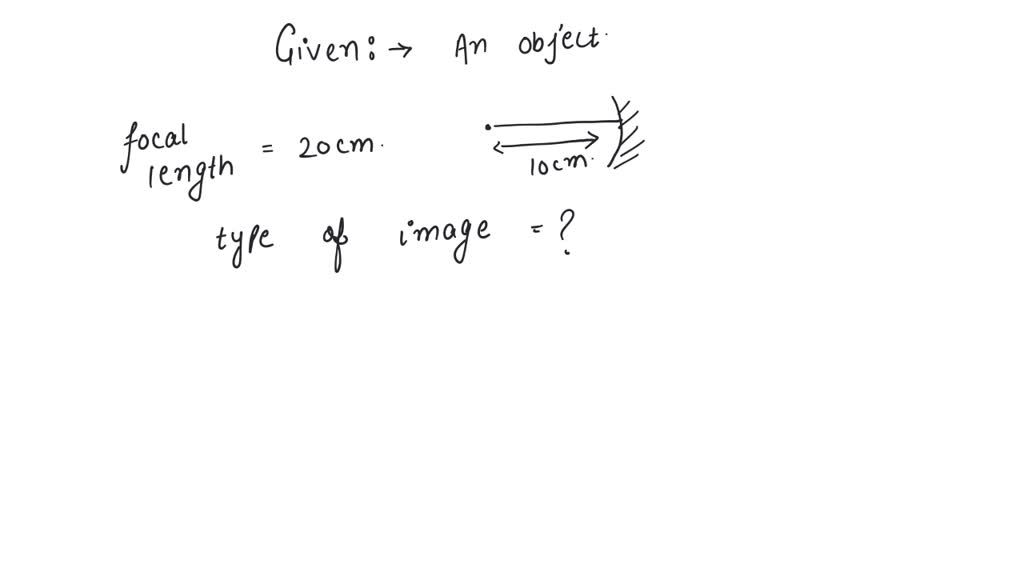 Given: → An object.
focal length = 20cm.
10cm.
type of image = ?